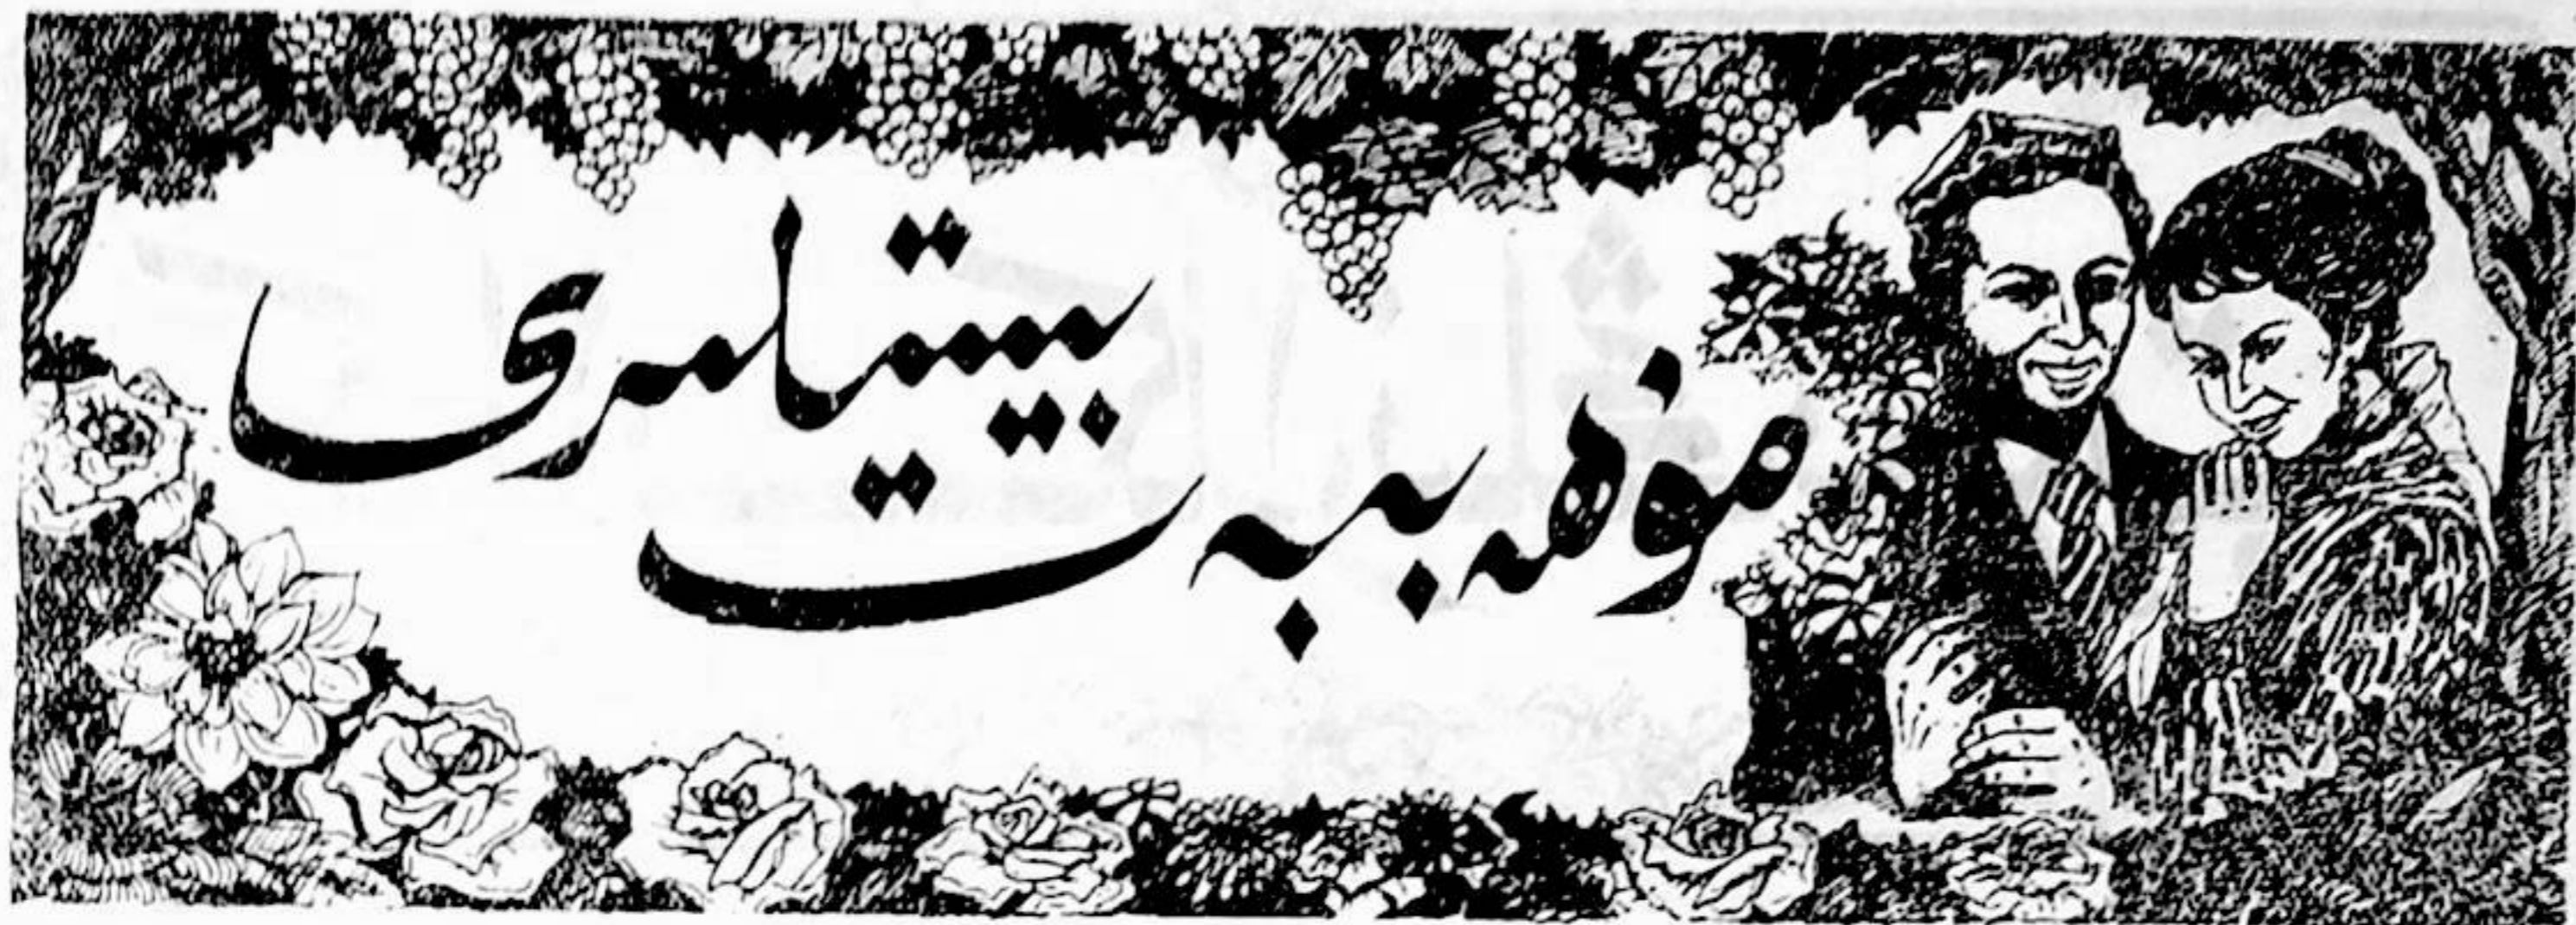 مۇھەببەت
بېيىتلىرى